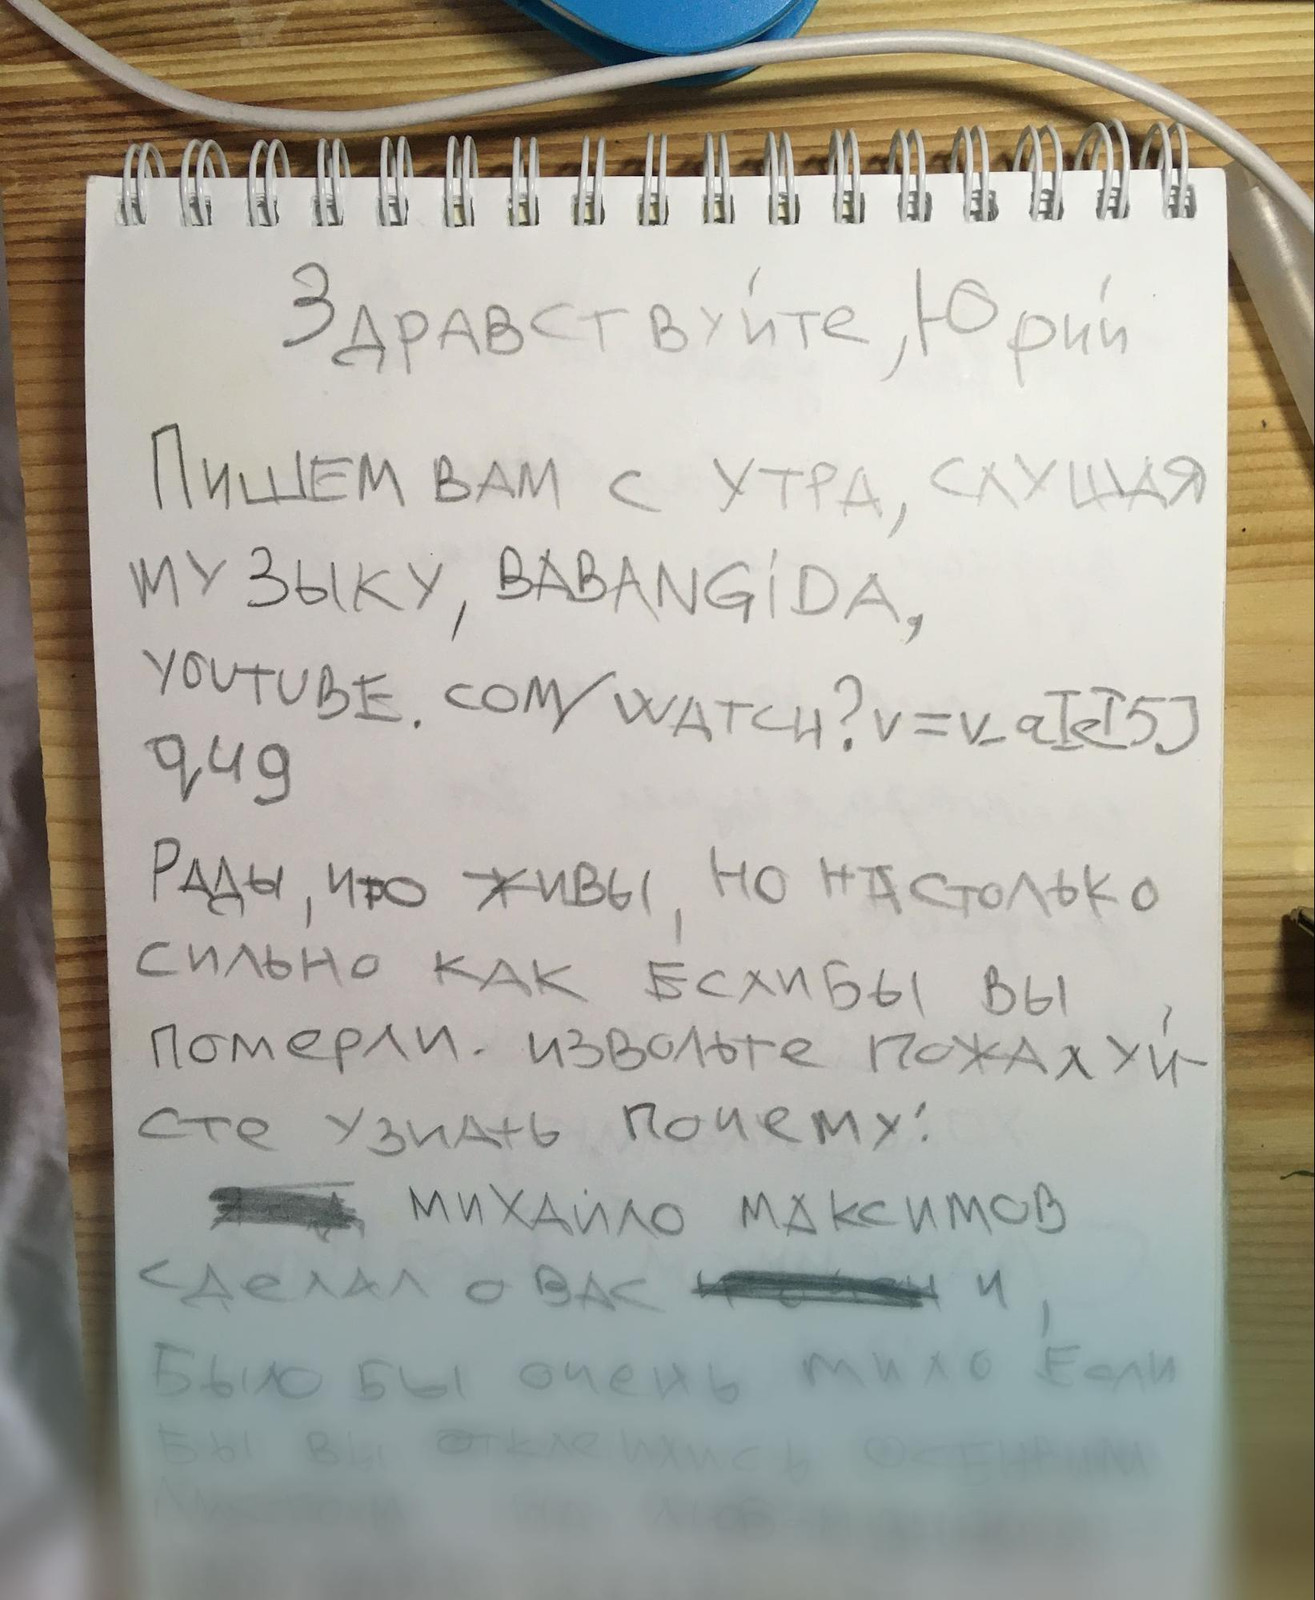 Здравствуйте, Юрий
Пишем вам с утра, слушая
музыку, BABANGIDA,
YOUTUBE.COM/WATCH?v=v_aIeI5J
q49
Рады, что живы, но настолько
сильно как еслибы вы
померли. извольте пожалуй-
сте узнать почему:
михайло максимов
сделал о вас и,
было бы очень мило если
бы вы